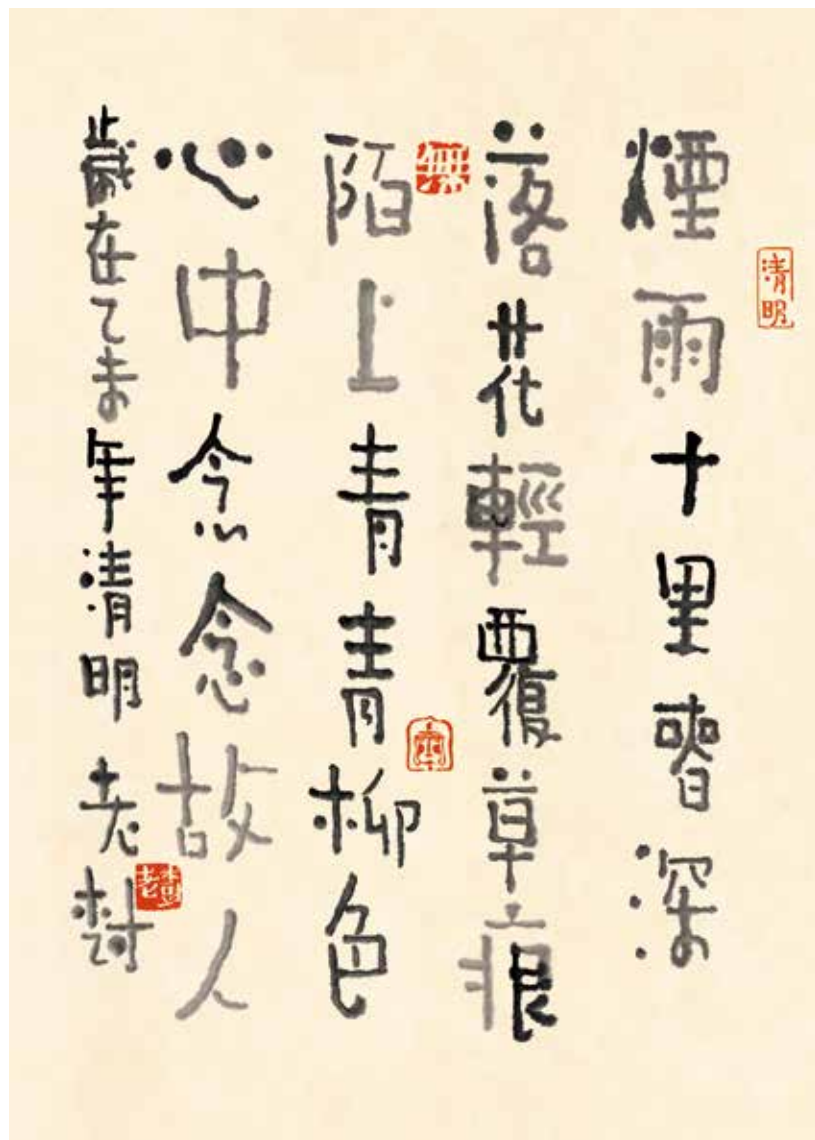 清明
煙雨十里深
落花輕覆草痕
無
陌上青青柳色
心中念念故人
歲在乙未年清明 老樹
老樹